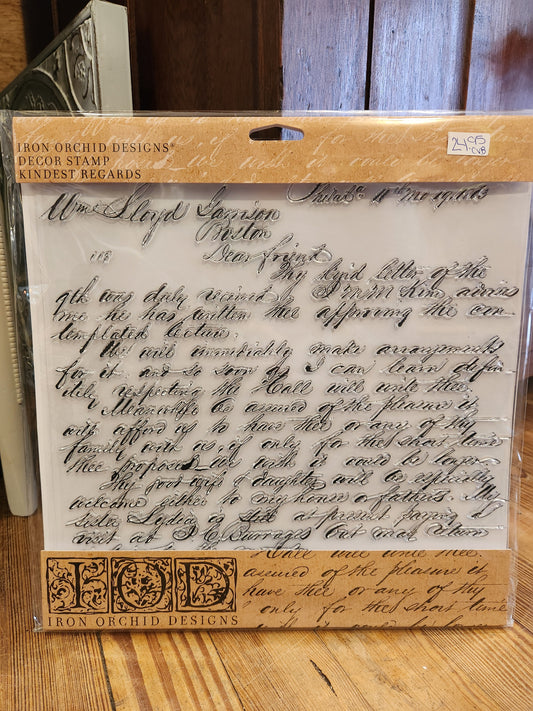 IRON ORCHID DESIGNS®
DECOR STAMP
KINDEST REGARDS
24.95
CVB
Wm Lloyd Garrison
Boston
Dear friend
Thy kind letter of the
9th was duly received & J M M Kim advises
me he has written thee approving the con
templated lecture.
We will immediately make arrangements
for it, and so soon as I can learn defin
itely respecting the Hall will write thee.
Meanwhile be assured of the pleasure it
will afford us to have thee or any of thy
family with us, if only for the short time
thee proposed we wish it could be longer.
Thy good wife & daughter will be especially
welcome either to my house or fathers. My
sister Lydia is still at present paying a
visit at J C Burroughs but may return
Hall will write thee.
assured of the pleasure it
have thee or any of thy
only for the short time
IOD
IRON ORCHID DESIGNS